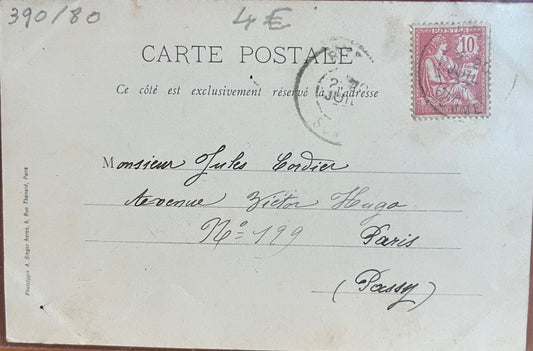 390/80
4€
CARTE POSTALE
Ce côté est exclusivement réservé à l'adresse
POSTES
10
Monsieur Jules Cordier
Avenue Victor Hugo
N° 199 Paris
(Passy)
Phototypie A. Breger frères, 9, Rue Thénard, Paris